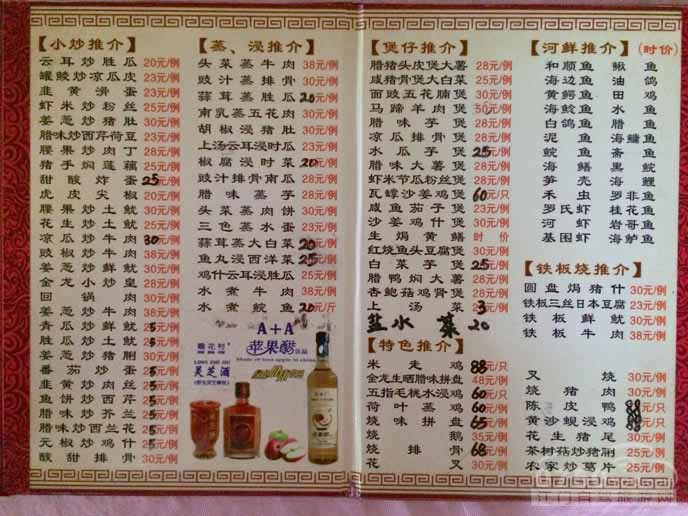 【小炒推介】
云耳炒胜瓜 20元/例
罐鲮炒凉瓜皮 23元/例
韭黄滑蛋 23元/例
虾米炒粉丝 25元/例
姜葱炒猪肚 30元/例
腊味炒西芹荷豆 23元/例
腰果炒肉丁 28元/例
猪手焖莲藕 25元/例
甜酸炸蛋 25元/例
虎皮尖椒 20元/例
腰果炒土鱿 30元/例
花生炒土鱿 25元/例
凉瓜炒牛肉 30元/例
豉椒炒牛肉 30元/例
姜葱炒鲜鱿 30元/例
金龙小炒皇 28元/例
回锅肉 30元/例
姜葱炒牛肉 38元/例
青瓜炒鲜鱿 25元/例
胜瓜炒土鱿 25元/例
姜葱炒猪脷 30元/例
番茄炒蛋 25元/例
韭黄炒肉丝 25元/例
鱼饼炒西芹 25元/例
腊味炒芥兰 25元/例
腊味炒西兰花 25元/例
元椒炒鸡什 25元/例
酸甜排骨 30元/例
【蒸、浸推介】
头菜蒸牛肉 38元/例
豉汁蒸排骨 30元/例
蒜茸蒸胜瓜 20元/例
南乳蒸五花肉 30元/例
胡椒浸猪肚 30元/例
上汤云耳浸时瓜 23元/例
椒腐浸时菜 20元/例
豉汁排骨蒸南瓜 28元/例
腊味蒸芋 28元/例
头菜蒸肉饼 30元/例
三色蒸水蛋 23元/例
蒜茸蒸大白菜 20元/例
鱼丸浸西洋菜 25元/例
鸡什云耳浸胜瓜 25元/例
水煮牛肉 38元/例
水煮鲩鱼 20元/斤
A+A
苹果醋 饮品
龍花村
灵芝酒
【煲仔推介】
腊猪头皮煲大薯 28元/例
咸猪骨煲大白菜 25元/例
面豉五花腩煲 30元/例
马蹄羊肉煲 50元/例
腊味芋煲 28元/例
凉瓜排骨煲 28元/例
水瓜芋煲 25元/例
腊味大薯煲 28元/例
虾米节瓜粉丝煲 28元/例
瓦罉沙姜鸡煲 60元/只
咸鱼茄子煲 23元/例
沙姜鸡什煲 30元/例
生焗黄鳝 时价
红烧鱼头豆腐煲 30元/例
白菜芋煲 25元/例
腊鸭焖大薯 28元/例
杏鲍菇鸡肾煲 28元/例
上汤菜 23元/例
盐水菜 20
【特色推介】
米走鸡 88元/只
金龙生晒腊味拼盘 48元/例
五指毛桃水浸鸡 60元/只
荷叶蒸鸡 60元/只
烧味拼盘 65元/例
烧鹅 35元/例
烧排骨 68元/例
花叉 30元/例
【河鲜推介】（时价）
和顺鱼 鳅鱼
海边鱼 油鸽
黄鳄鱼 田鸡
海鲶鱼 水鱼
白鸽鱼 腊鱼
泥鱼 海鱅鱼
鲩鱼 斋鱼
海鳝 黑鱼
笋壳 海鲤
禾虫 罗非鱼
罗氏虾 桂花鱼
河虾 岩哥鱼
基围虾 海鲈鱼
【铁板烧推介】
圆盘焗猪什 30元/例
铁板三丝日本豆腐 23元/例
铁板鲜鱿 30元/例
铁板牛肉 38元/例
叉烧 30元/例
烧猪肉 30元/例
陈皮鸭 元/只
黄沙蚬浸鸡 元/只
花生猪尾 30元/例
茶树菇炒猪脷 25元/例
农家炒葛片 25元/例